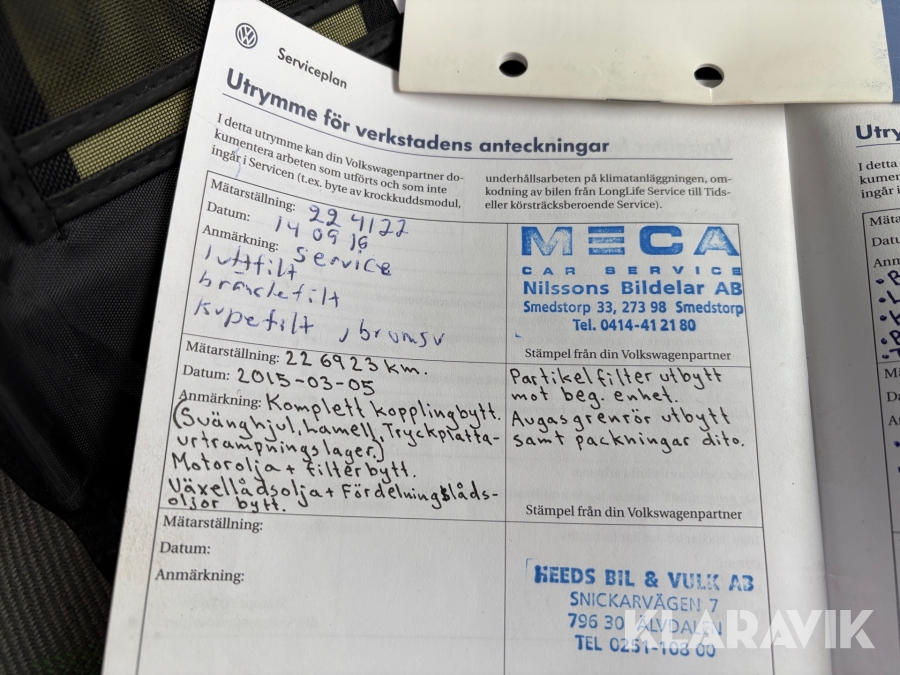 Serviceplan
Utrymme för verkstadens anteckningar
I detta utrymme kan din Volkswagenpartner do-
kumentera arbeten som utförts och som inte
ingår i Servicen (t.ex. byte av krockkuddsmodul,
underhållsarbeten på klimatanläggning, om-
kodning av bilen från LongLife Service till Tids-
eller körsträcksberoende Service).
Mätarställning: 224122
Datum: 14 09 16
Anmärkning: Service
luftfilt
bränslefilt
kupefilt , bromsv
MECA
CAR SERVICE
Nilssons Bildelar AB
Smedstorp 33, 273 98 Smedstorp
Tel. 0414-41 21 80
Stämpel från din Volkswagenpartner
Mätarställning: 226923 km.
Datum: 2015-03-05
Anmärkning: Komplett kopplingbytt.
(Svänghjul, Lamell, Tryckplatta-
urtrampningslager.)
Motorolja + filterbytt.
Växellådsolja + Fördelningslåds-
oljor bytt.
Partikelfilter utbytt
mot beg. enhet.
Avgasgrenrör utbytt
samt packningar dito.
Stämpel från din Volkswagenpartner
Mätarställning:
Datum:
Anmärkning:
HEEDS BIL & VULK AB
SNICKARVÄGEN 7
796 30 ÄLVDALEN
TEL 0251-108 00
KLARAVIK
Utry
I detta
kumen
ingår i
Mäta
Datu
Anm
Mä
Da
A